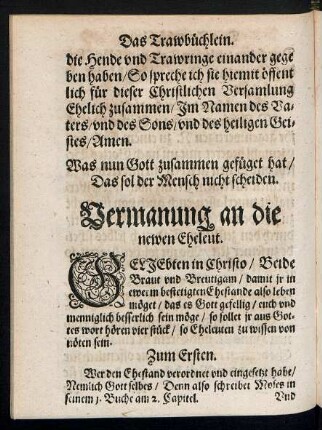 Das Trawbüchlein.
die Hende vnd Trawringe einander gege
ben haben / So spreche ich sie hiemit öffent
lich für dieser Christlichen Versamlung
Ehelich zusammen / Im Namen des Va-
ters / vnd des Sons / vnd des heiligen Gei-
stes / Amen.
Was nun Gott zusammen gefüget hat /
Das sol der Mensch nicht scheiden.
Vermanung an die
newen Eheleut.
GELIEbten in Christo / Beide
Braut vnd Breutigam / damit jr in
ewerm bestetigten Ehestande also leben
möget / das es Gott gefellig / euch vnd
menniglich besserlich sein möge / so sollet jr aus Got-
tes wort hören vier stück / so Eheleuten zu wissen von
nöten sein.
Zum Ersten.
Wer den Ehestand verordnet vnd eingesetzt habe /
Nemlich Gott selbes / Denn also schreibet Moses in
seinem 1. Buche am 2. Capitel.
Vnd